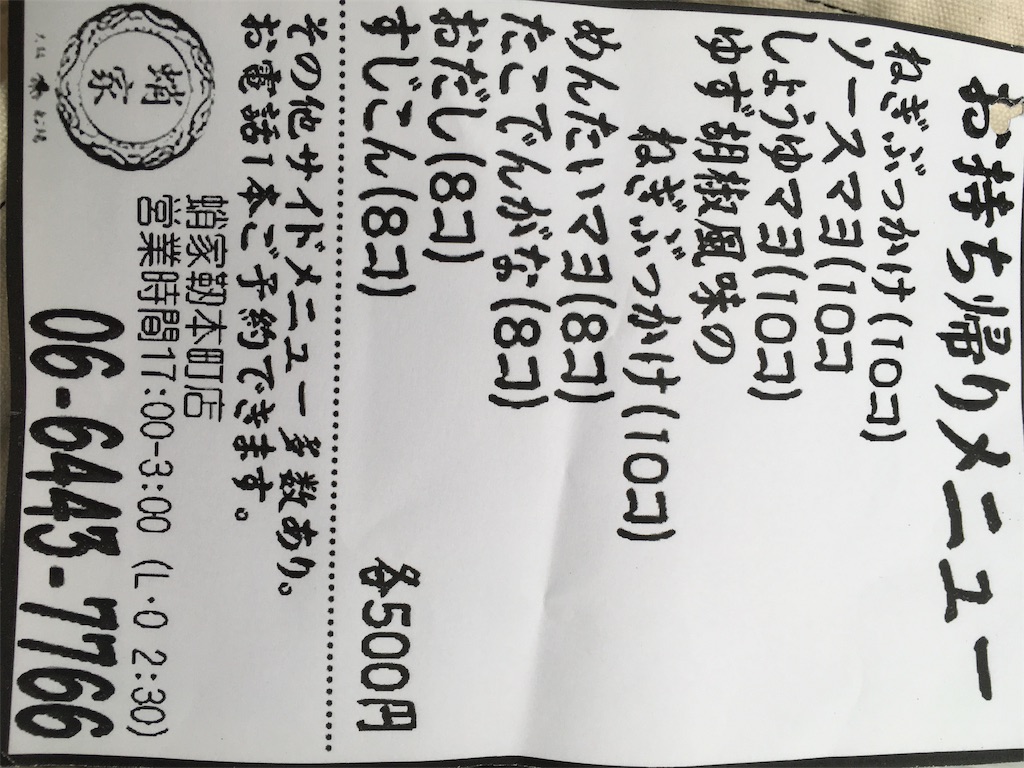 お持ち帰りメニュー
ねぎぶっかけ(10コ)
ソースマヨ(10コ
しょうゆマヨ(10コ)
ゆず胡椒風味の
ねぎぶっかけ(10コ)
めんたいマヨ(8コ)
たこでんがな(8コ)
おだし(8コ)
すじこん(8コ) 各500円
その他サイドメニュー多数あり。
お電話1本ご予約できます。
蛸家靭本町店
営業時間17:00-3:00 (L·O 2:30)
06-6443-7766
蛸家